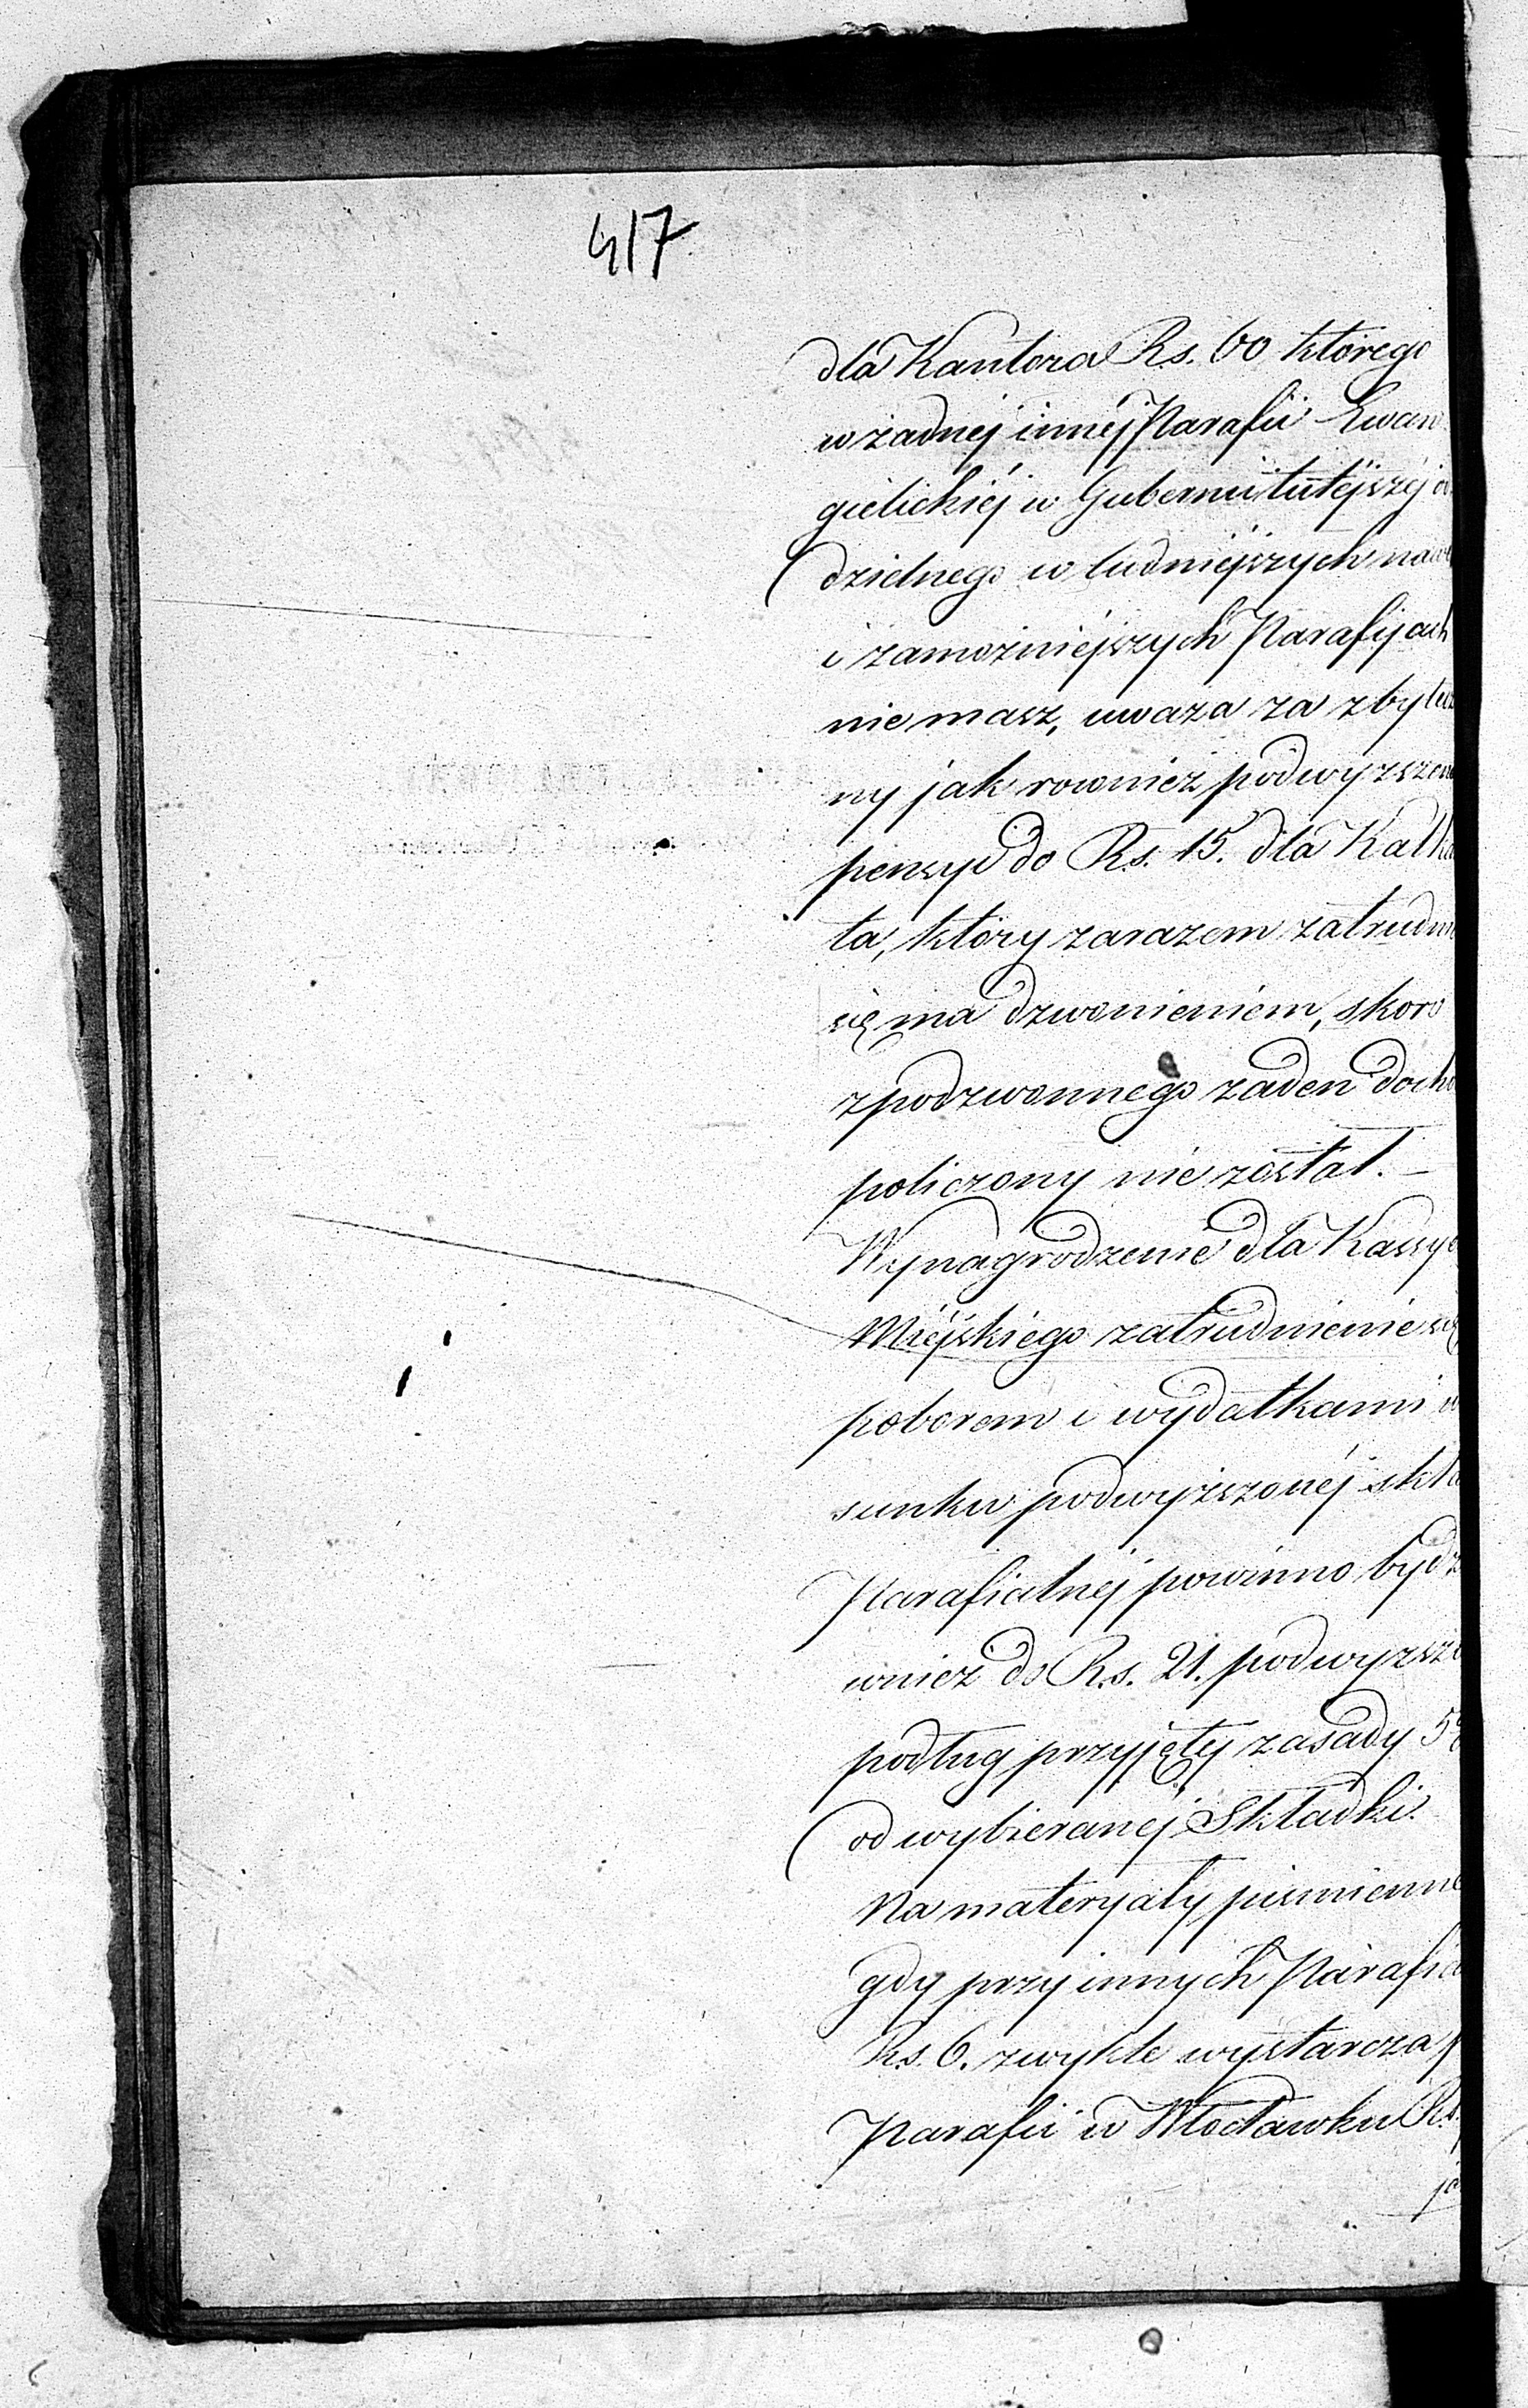 417
dla Kantora Rs. 60 którego
w żadnej innéj Parafii Ewan
gielickiéj w Gubernii tutéjszéj o
dzielnego w ludniéjszych naw
i zamożniéjszych Parafijach
nie masz, uważa za zbytecz
ny jak rownież podwyższen
pensyi do Rs. 15. dla Kalka
ta, który zarazem zatrudni
się ma dzwonieniem, skoro
z podzwonnego żaden docho
policzony nie został. —
Wynagrodzenie dla Kassye
Miéjskiego zatrudnienie się
poborem i wydatkami w
sunku podwyższonéj skła
Parafialnéj powinno bydź
wnież do Rs. 21. podwyższo
podług przyjętéj zasady 5%
od wybieranéj Składki.
Na materyały piśmienne
gdy przy innych Parafia
Rs. 6. zwykle wystarcza p
Parafii w Włocławku Rs.
ja